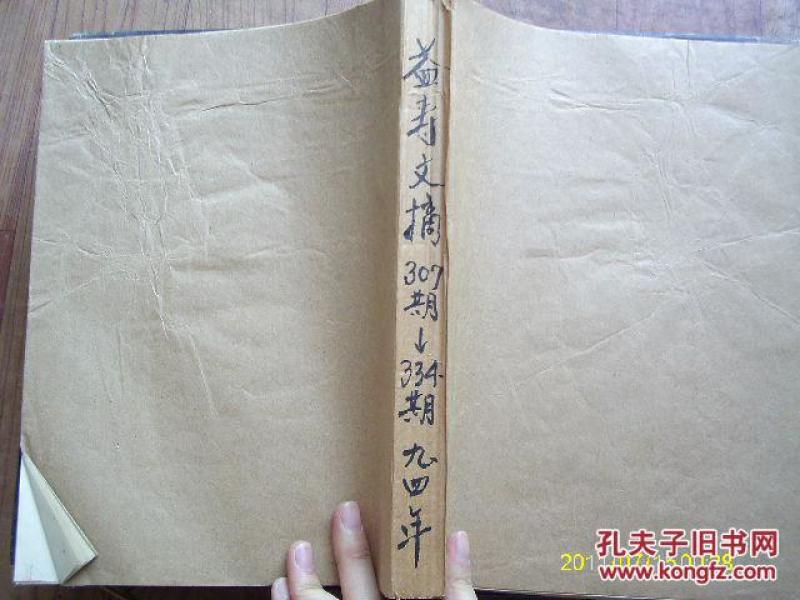 益寿文摘
307
期
↓
334
期
九四年
孔夫子旧书网
www.kongfz.com